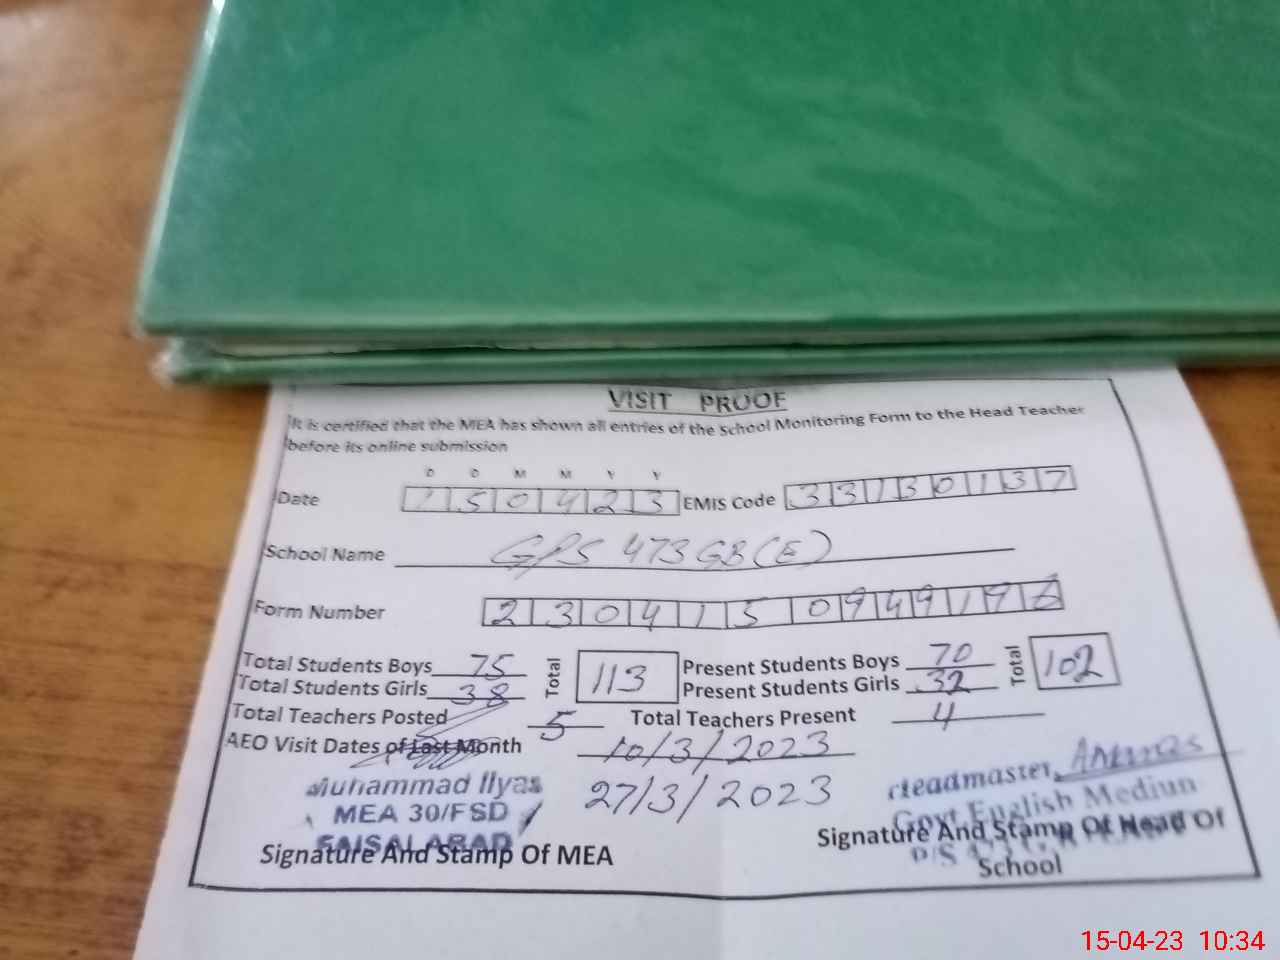 VISIT PROOF
It is certified that the MEA has shown all entries of the School Monitoring Form to the Head Teacher
before its online submission
D D M M Y Y
Date 150423 EMIS Code 33130137
School Name GPS 473 GB (E)
Form Number 230415094919
Total Students Boys 75 Total 113 Present Students Boys 70 Total 102
Total Students Girls 38 Present Students Girls 32
Total Teachers Posted 5 Total Teachers Present 4
AEO Visit Dates of Last Month 10/3/2023
27/3/2023
Muhammad Ilyas
MEA 30/FSD
FAISALABAD
Signature And Stamp Of MEA
Headmaster
Govt English Medium
P/S
Signature And Stamp Of Head Of
School
15-04-23 10:34